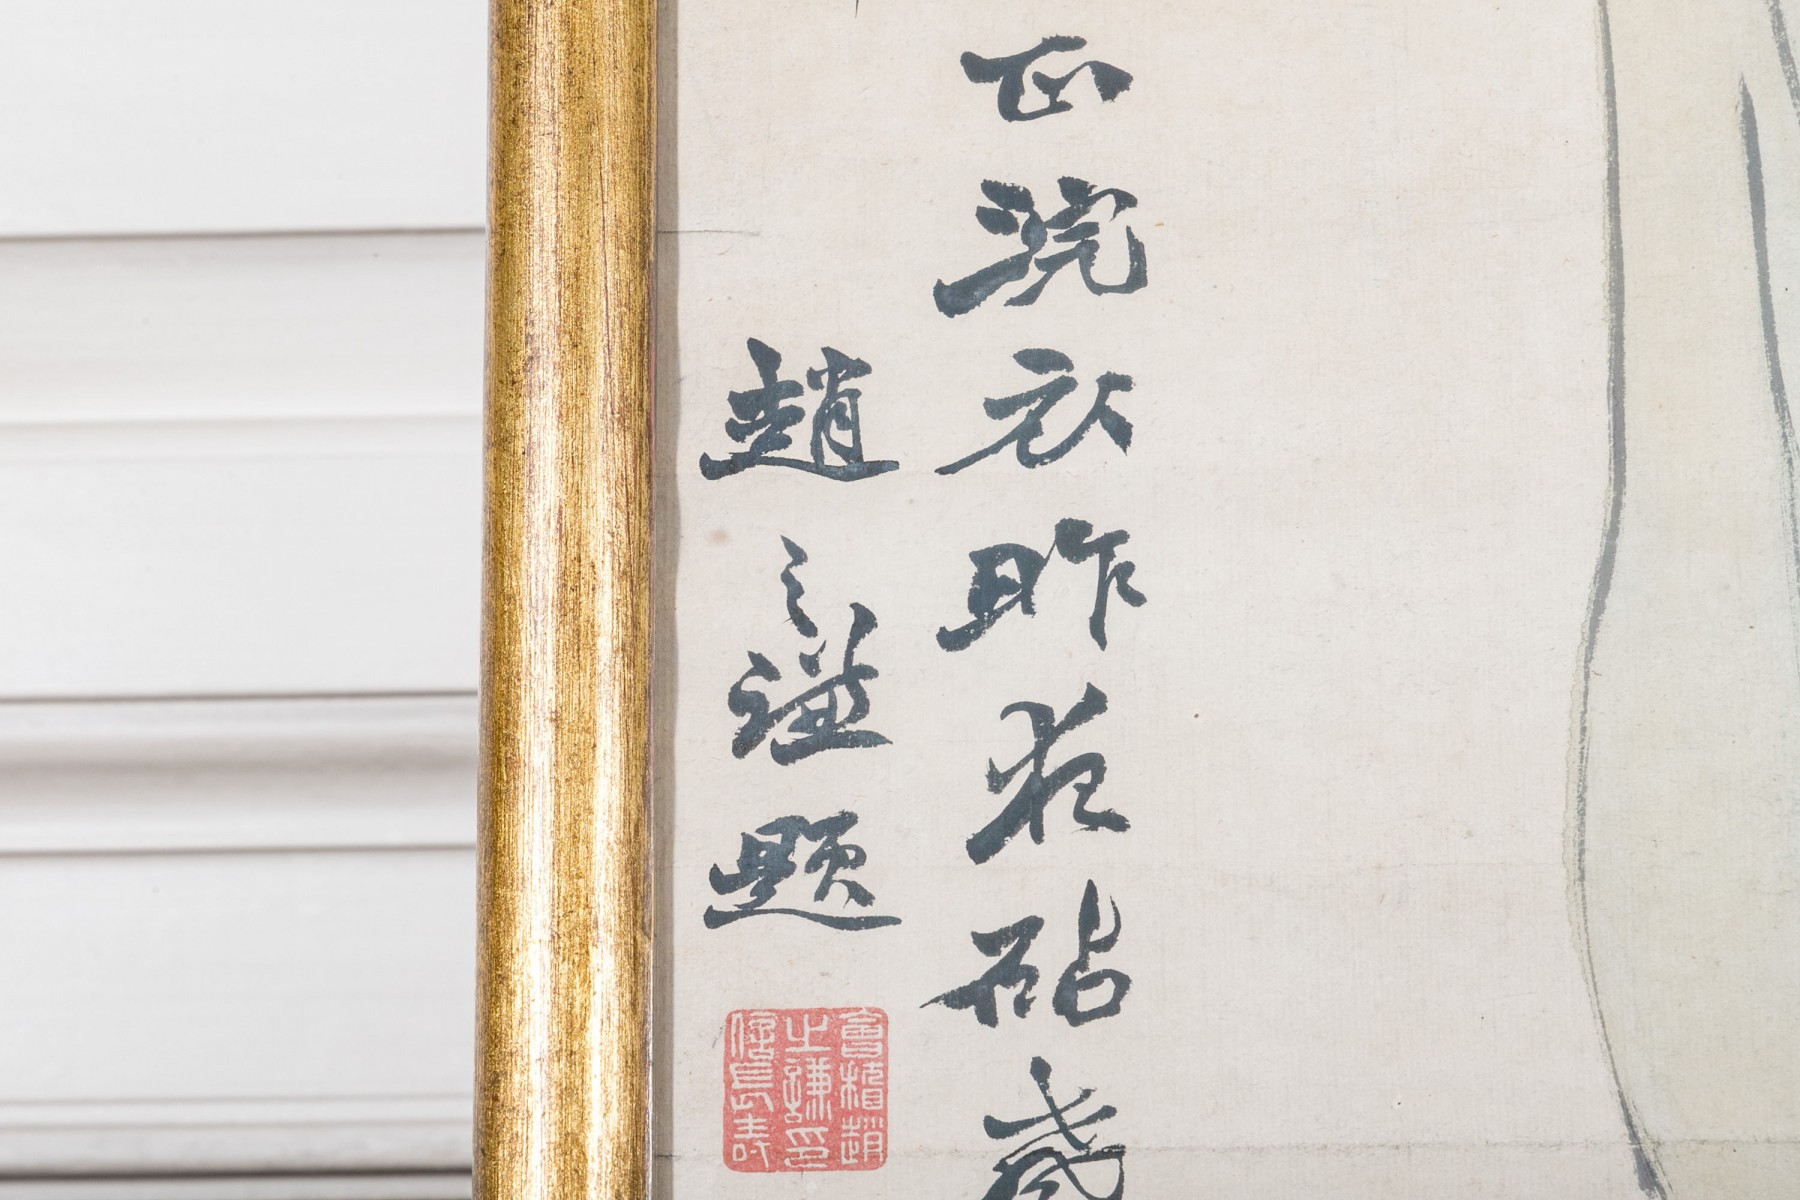 正浣衣昨夜砧
趙之謙題
會稽趙
之謙印
信長壽